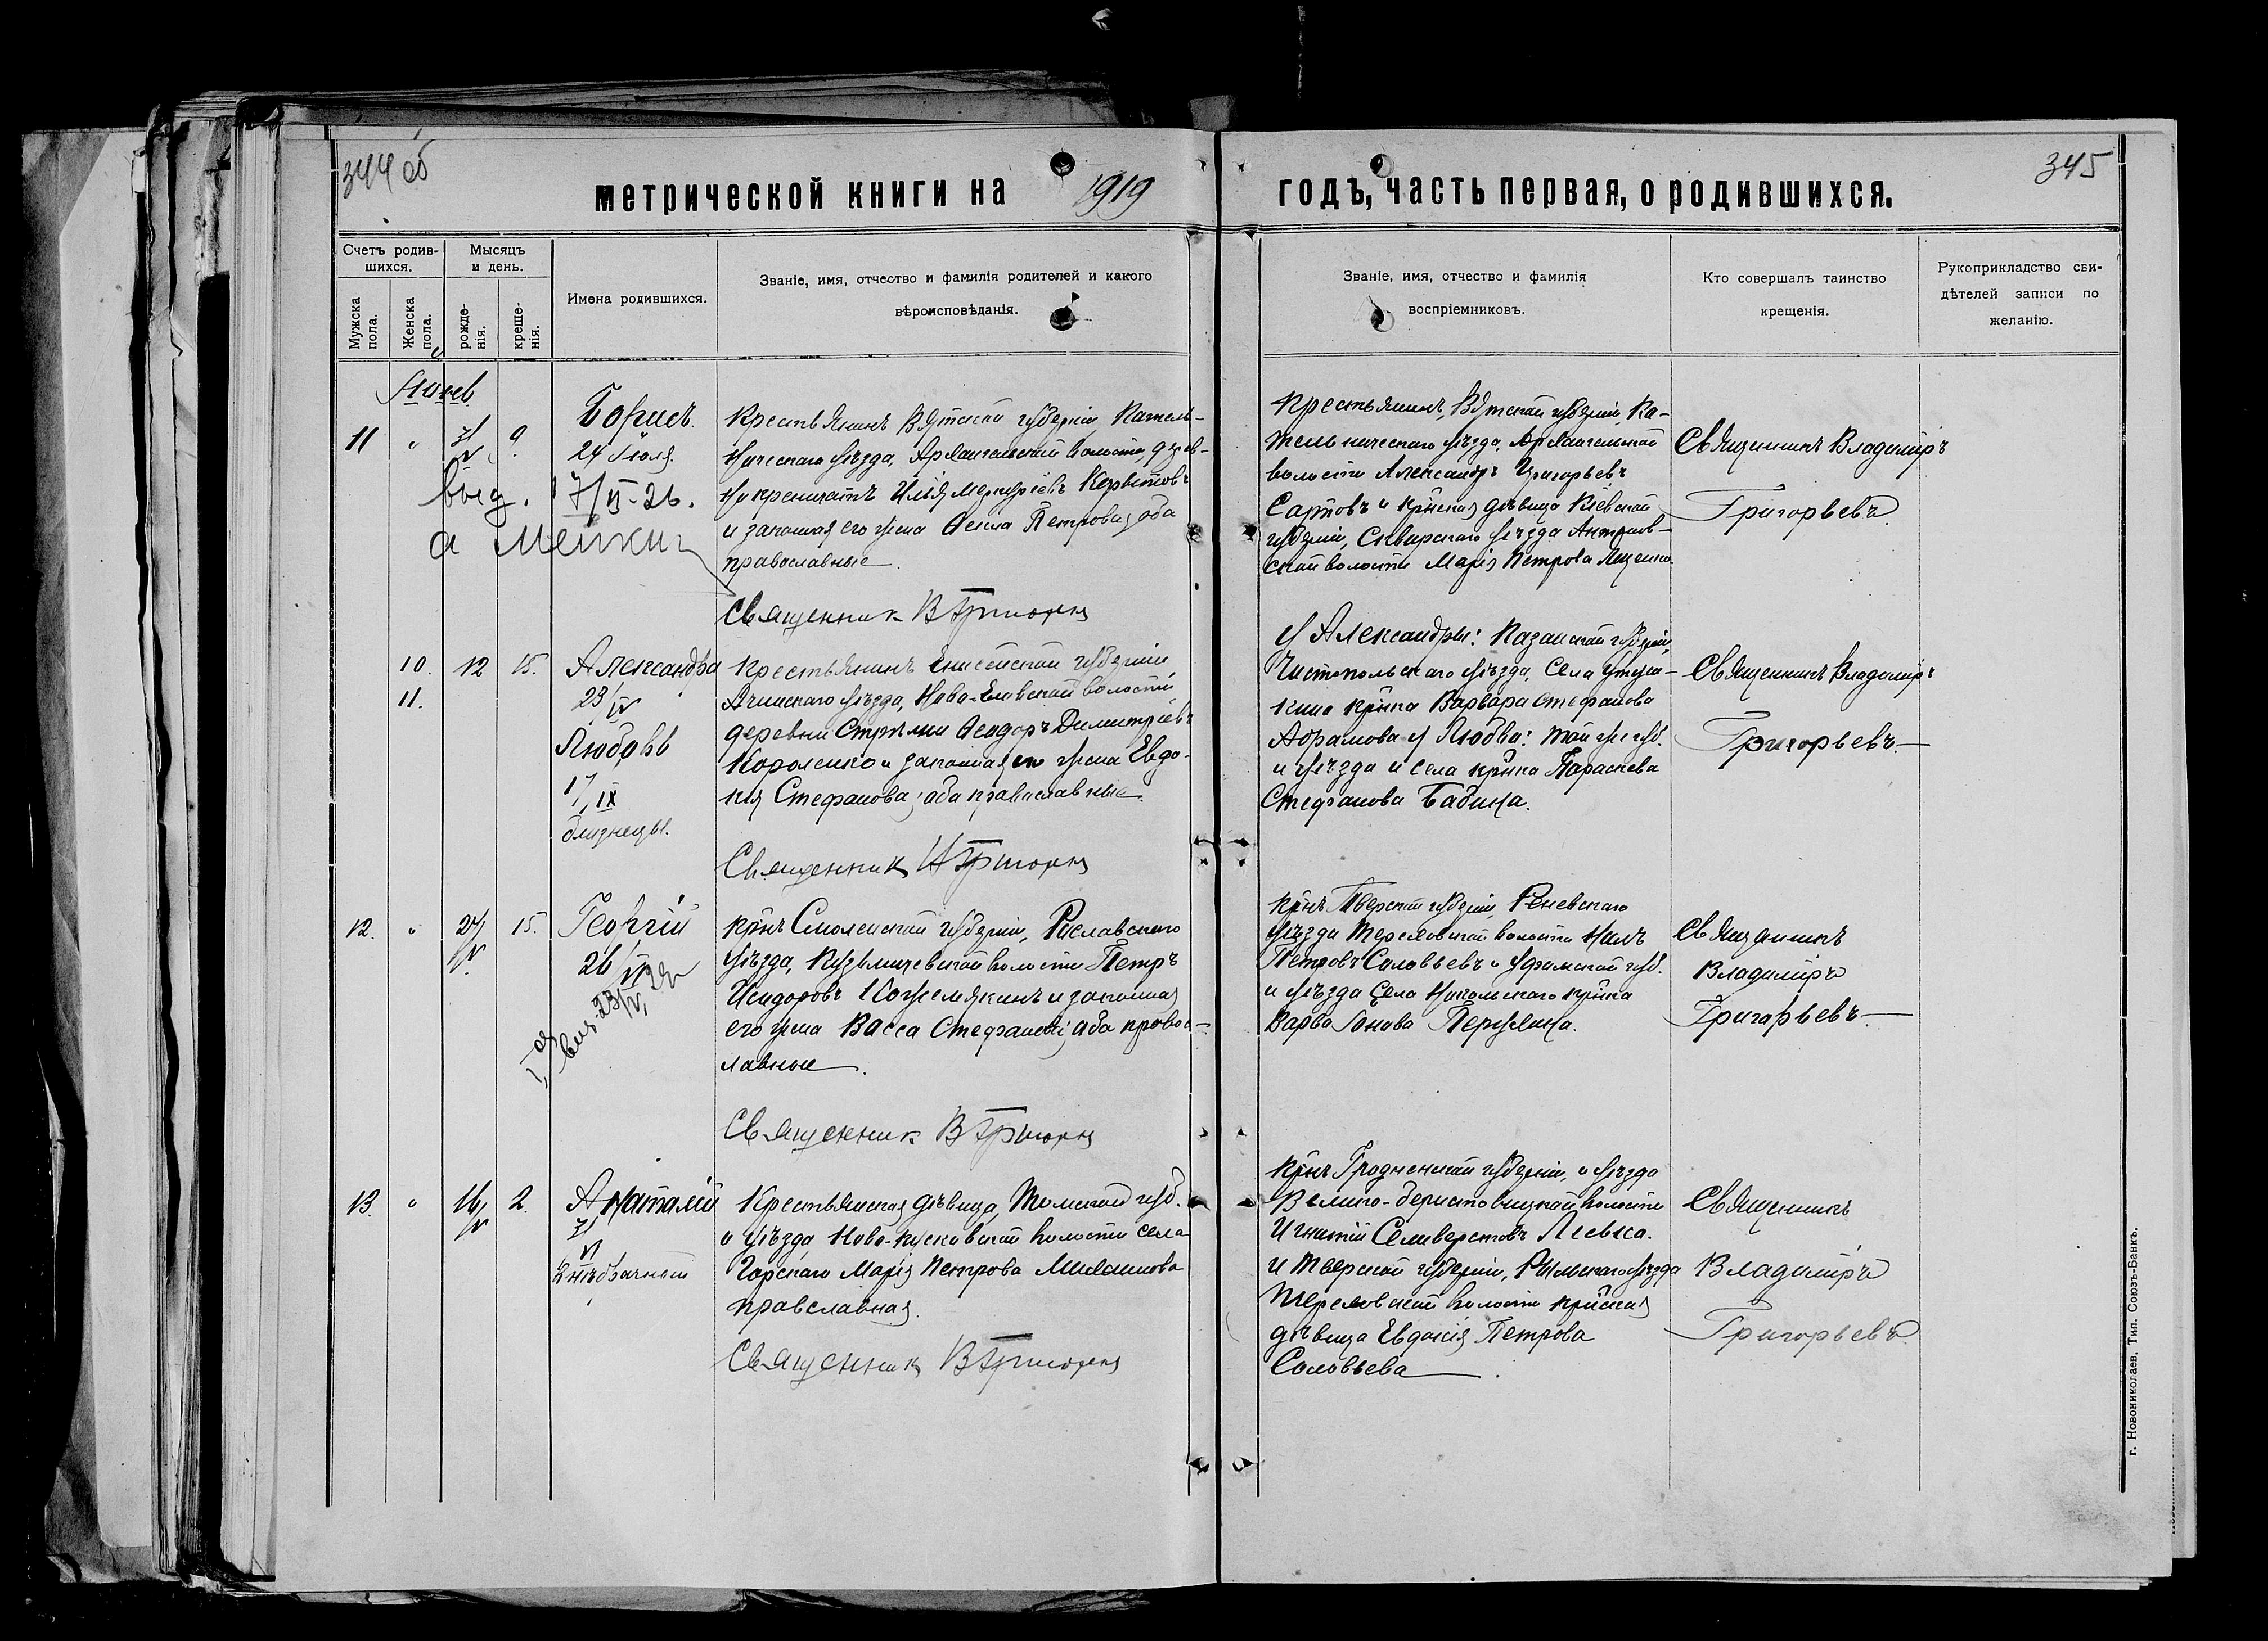 344 об
345
метрической книги на 1919 годъ, часть первая, о родившихся.
Счетъ родив-
шихся.
Мѣсяцъ
и день.
Мужска
пола.
Женска
пола.
рожде-
нія.
креще-
нія.
Имена родившихся.
Званіе, имя, отчество и фамилія родителей и какого
вѣроисповѣданія.
Званіе, имя, отчество и фамилія
воспріемниковъ.
Кто совершалъ таинство
крещенія.
Рукоприкладство сви-
дѣтелей записи по
желанію.
11
9
Борисъ.
24 Іюля.
выд. 17/VI-26.
Крестьянинъ Вятской губерніи, Котель-
ническаго уѣзда, Архангельской волости, дерев-
Илья Меркуріевъ
и законная его жена Петрова; оба
православные.
Священник В Григорьев
Крестьянинъ, Вятской губерніи, Ко-
тельническаго уѣзда, Архангельской
волости Александръ Григорьевъ
Сартовъ и кр-нская дѣвица Кіевской
губерніи, Сквирскаго уѣзда Антонов-
ской волости Марія Петрова
Священникъ Владиміръ
Григорьевъ.
10. 12 15.
11.
Александра
23/IV
Любовь
17/IX
близнецы.
Крестьянинъ Енисейской губерніи
Ачинскаго уѣзда, Ново-Еловской волости
деревни Ѳеодоръ Димитріевъ
Короленко и законная его жена Евдо-
кія Стефанова; оба православные.
Священник В Григорьев
У Александры: Казанской губерніи,
Чистопольскаго уѣзда, Села
кр-нка Варвара Стефанова
Абрамова У Любви: той же губ.
и уѣзда и села кр-нка Параскева
Стефанова Бабина.
Священникъ Владиміръ
Григорьевъ.
12. 27/V 15.
Георгій
26/IV
Кр-нъ Смоленской губерніи, Рославскаго
уѣзда, Кузьмичевской волости Петръ
Исидоровъ Кожемякинъ и законная
его жена Васса Стефанова; оба право-
славные.
Священник В Григорьев
Кр-нъ Тверской губерніи,
уѣзда волости
Петровъ Соловьевъ и Уфимской губ.
и уѣзда Села Никольскаго кр-нка
Священникъ
Владиміръ
Григорьевъ.
13. 16/V 2.
Анатолій
3/VII
Внѣбрачный
Крестьянская дѣвица, Томской губ.
и уѣзда Ново-Кусковской волости села
Марія Петрова
православная.
Священник В Григорьев
Кр-нъ Гродненской губерніи, и уѣзда
Велико-берестовицкой волости
Игнатій Селиверстовъ
и Тверской губерніи, уѣзда
волости кр-нская
дѣвица Евдокія Петрова
Соловьева.
Священникъ
Владиміръ
Григорьевъ
г. Новониколаев. Тип. Союзъ-Банкъ.